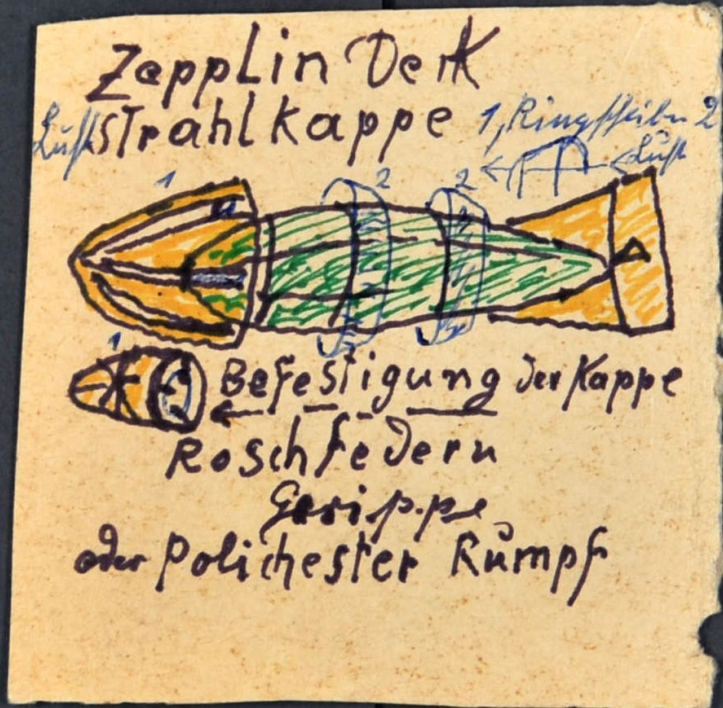 Zepplin Derk
Luftstrahlkappe 1, Ringscheibe 2
← Luft
1 2 2
1
Befestigung der Kappe
Roschfedern
Gerippe
oder Polichester Rumpf